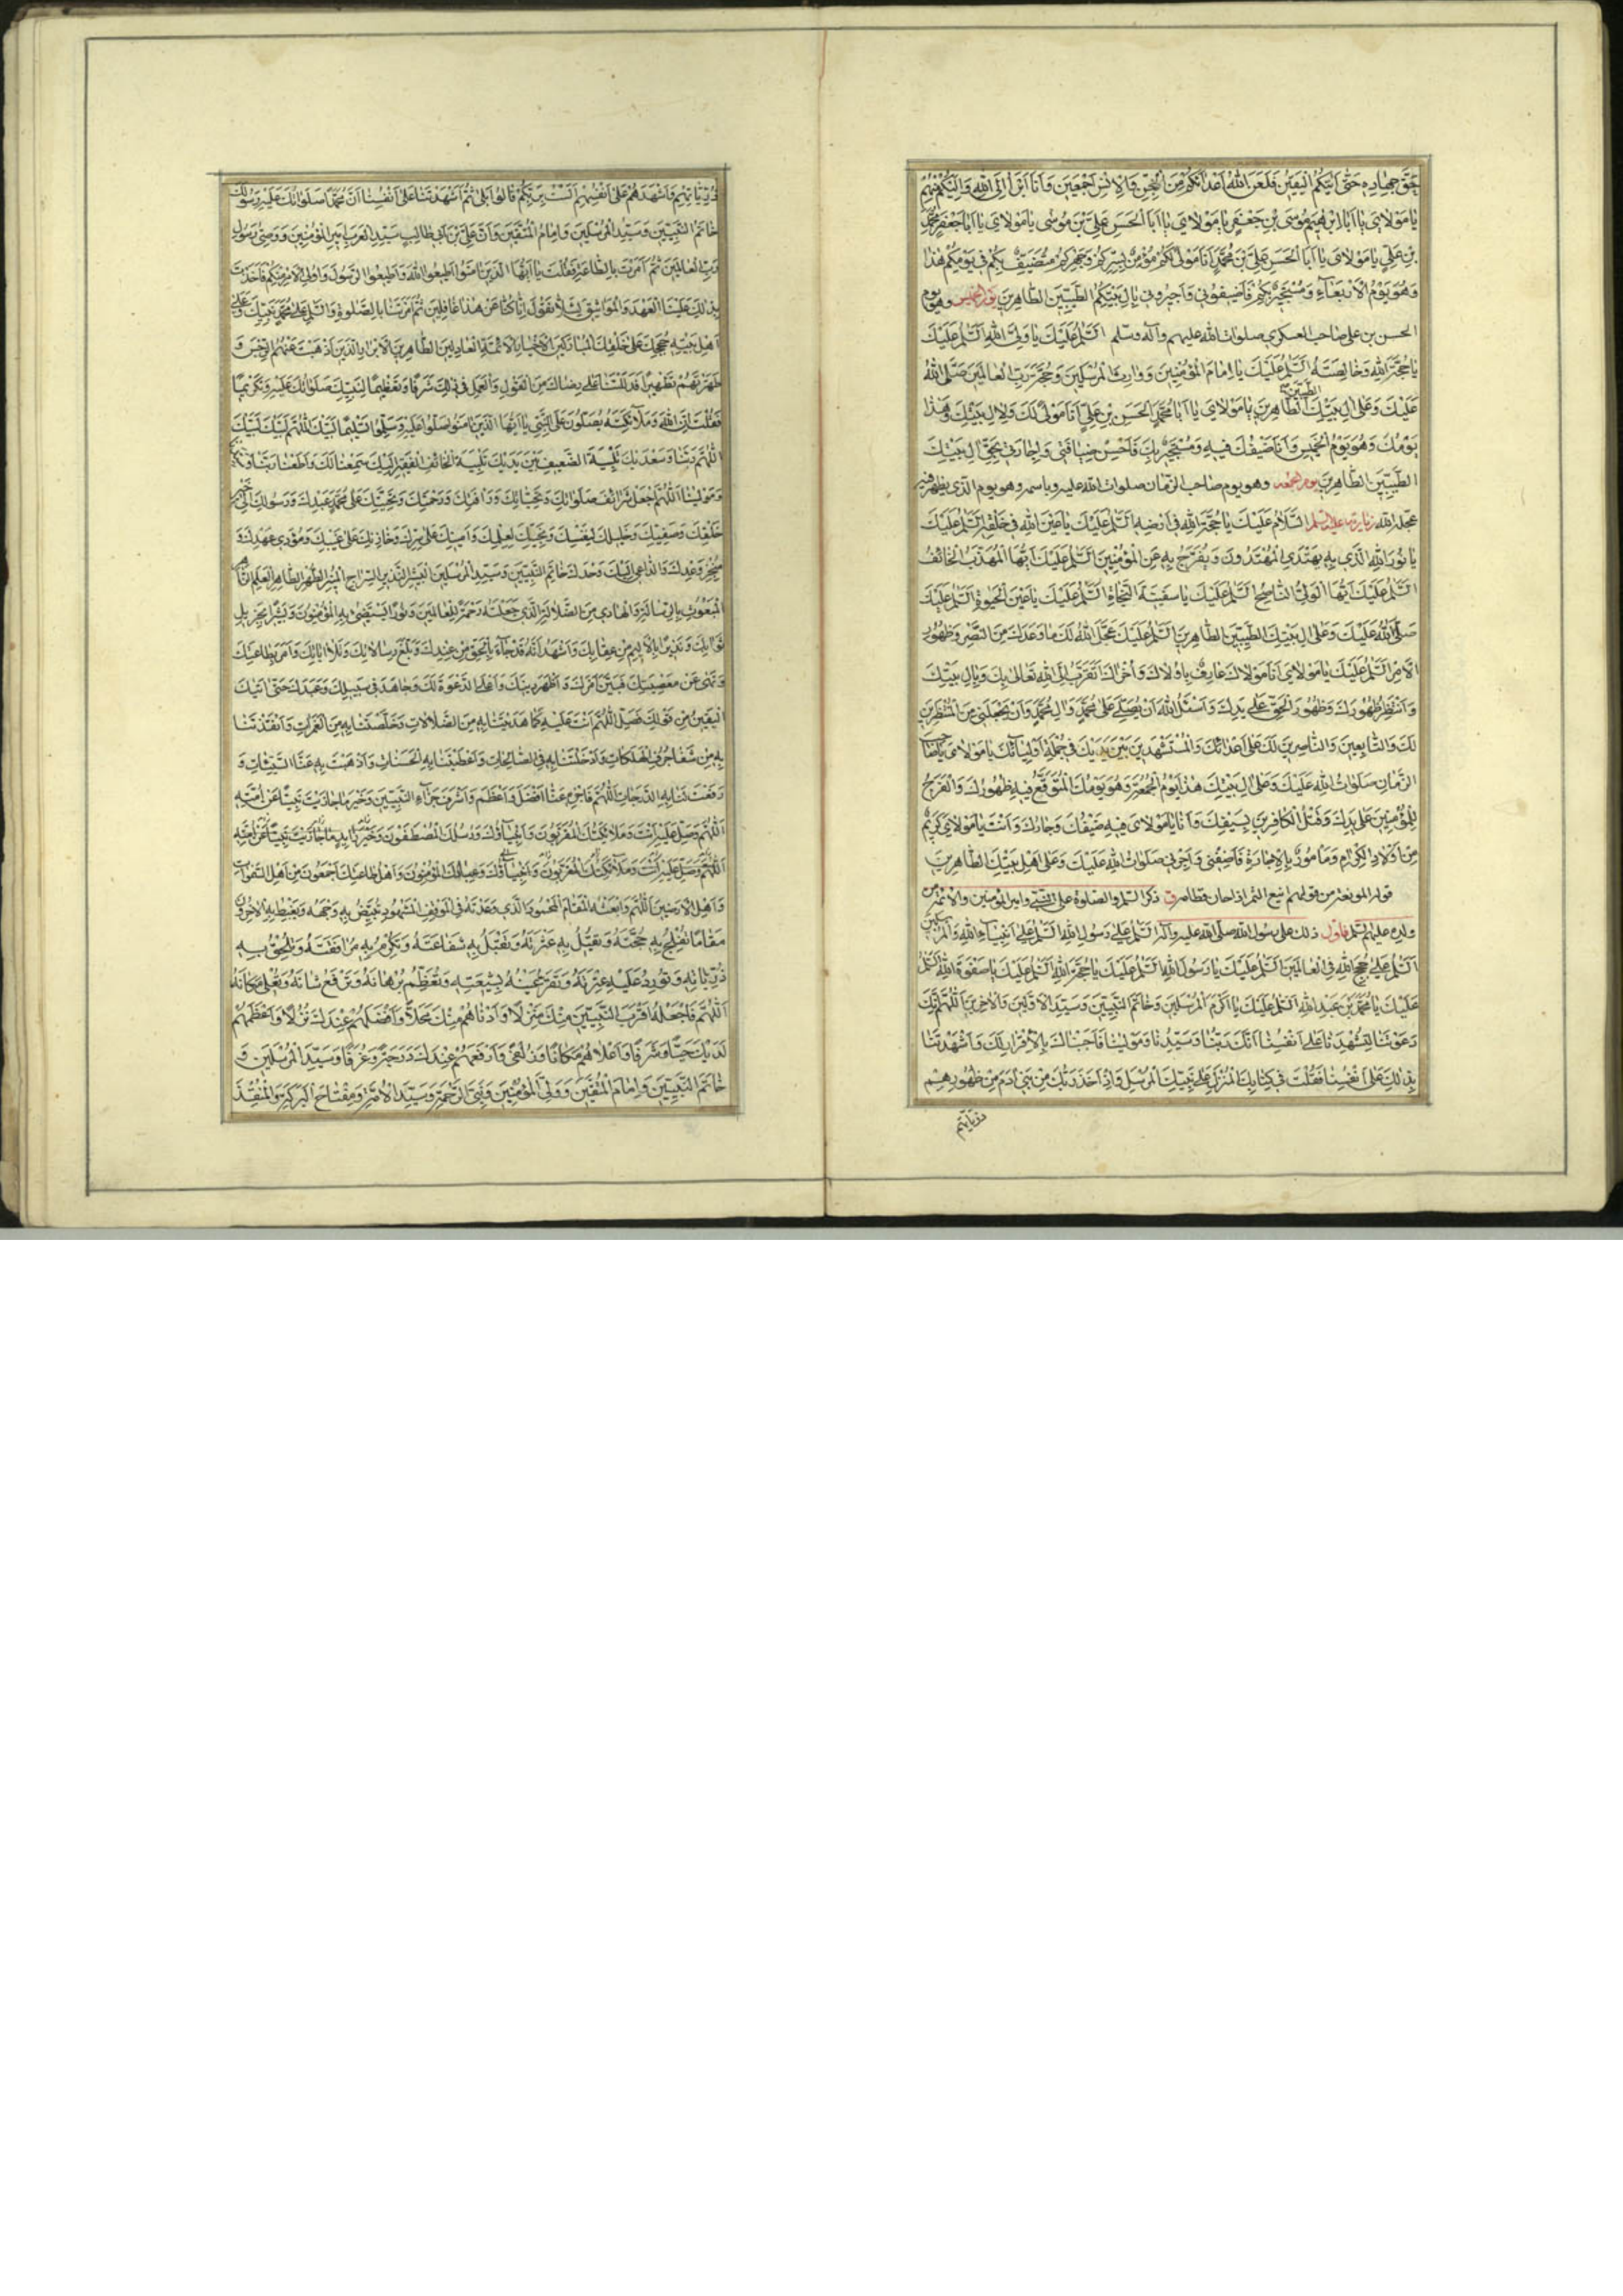 حَقَّ جِهَادِهِ حَتّٰى اَتٰيكُمُ الْيَقِينُ فَلَعَنَ اللّٰهُ اَعْدَائَكُمْ مِنَ الْجِنِّ وَالْاِنْسِ اَجْمَعِينَ وَاَنَا اَبْرَأُ اِلَى اللّٰهِ وَاِلَيْكُمْ مِنْهُمْ
يَا مَوْلَايَ يَا اَبَا اِبْرٰهِيمَ مُوسَى بْنَ جَعْفَرٍ يَا مَوْلَايَ يَا اَبَا الْحَسَنِ عَلِيَّ بْنَ مُوسٰى يَا مَوْلَايَ يَا اَبَا جَعْفَرٍ مُحَمَّدَ
بْنَ عَلِيٍّ يَا مَوْلَايَ يَا اَبَا الْحَسَنِ عَلِيَّ بْنَ مُحَمَّدٍ اَنَا مَوْلًى لَكُمْ مُؤْمِنٌ بِسِرِّكُمْ وَجَهْرِكُمْ مُتَضَيِّفٌ بِكُمْ فِي يَوْمِكُمْ هٰذَا
وَهُوَ يَوْمُ الْاَرْبَعَآءِ وَمُسْتَجِيرٌ بِكُمْ فَاَضِيفُونِي وَاَجِيرُونِي بِاٰلِ بَيْتِكُمُ الطَّيِّبِينَ الطَّاهِرِينَ يوم الخميس وهو يوم
الحسن بن علي صاحب العسكري صلوات الله عليهم وآله وسلم اَلسَّلٰمُ عَلَيْكَ يَا وَلِيَّ اللّٰهِ اَلسَّلٰمُ عَلَيْكَ
يَا حُجَّةَ اللّٰهِ وَخَالِصَتَهُ اَلسَّلٰمُ عَلَيْكَ يَا اِمَامَ الْمُؤْمِنِينَ وَوَارِثَ الْمُرْسَلِينَ وَحُجَّةَ رَبِّ الْعَالَمِينَ صَلَّى اللّٰهُ
عَلَيْكَ وَعَلٰى اٰلِ بَيْتِكَ الطَّيِّبِينَ الطَّاهِرِينَ يَا مَوْلَايَ يَا اَبَا مُحَمَّدٍ الْحَسَنَ بْنَ عَلِيٍّ اَنَا مَوْلًى لَكَ وَلِاٰلِ بَيْتِكَ وَهٰذَا
يَوْمُكَ وَهُوَ يَوْمُ الْخَمِيسِ وَاَنَا ضَيْفُكَ فِيهِ وَمُسْتَجِيرٌ بِكَ فَاَحْسِنْ ضِيَافَتِي وَاِجَارَتِي بِحَقِّ اٰلِ بَيْتِكَ
الطَّيِّبِينَ الطَّاهِرِينَ يوم الجمعة وهو يوم صاحب الزمان صلوات الله عليه وباسمه وهو يوم الذي يظهر فيه
عجله الله زيارته عليه السلم اَلسَّلَامُ عَلَيْكَ يَا حُجَّةَ اللّٰهِ فِي اَرْضِهِ اَلسَّلٰمُ عَلَيْكَ يَا عَيْنَ اللّٰهِ فِي خَلْقِهِ اَلسَّلٰمُ عَلَيْكَ
يَا نُورَ اللّٰهِ الَّذِي بِهِ يَهْتَدِي الْمُهْتَدُونَ وَيُفَرَّجُ بِهِ عَنِ الْمُؤْمِنِينَ اَلسَّلٰمُ عَلَيْكَ اَيُّهَا الْمُهَذَّبُ الْخَائِفُ
اَلسَّلٰمُ عَلَيْكَ اَيُّهَا الْوَلِيُّ النَّاصِحُ اَلسَّلٰمُ عَلَيْكَ يَا سَفِينَةَ النَّجَاةِ اَلسَّلٰمُ عَلَيْكَ يَا عَيْنَ الْحَيٰوةِ اَلسَّلٰمُ عَلَيْكَ
صَلَّى اللّٰهُ عَلَيْكَ وَعَلٰى اٰلِ بَيْتِكَ الطَّيِّبِينَ الطَّاهِرِينَ اَلسَّلٰمُ عَلَيْكَ عَجَّلَ اللّٰهُ لَكَ مَا وَعَدَكَ مِنَ النَّصْرِ وَظُهُورِ
الْاَمْرِ اَلسَّلٰمُ عَلَيْكَ يَا مَوْلَايَ اَنَا مَوْلَاكَ عَارِفٌ بِاُولَاكَ وَاُخْرَاكَ اَتَقَرَّبُ اِلَى اللّٰهِ تَعَالٰى بِكَ وَبِاٰلِ بَيْتِكَ
وَاَنْتَظِرُ ظُهُورَكَ وَظُهُورَ الْحَقِّ عَلٰى يَدِكَ وَاَسْئَلُ اللّٰهَ اَنْ يُصَلِّيَ عَلٰى مُحَمَّدٍ وَاٰلِ مُحَمَّدٍ وَاَنْ يَجْعَلَنِي مِنَ الْمُنْتَظِرِينَ
لَكَ وَالتَّابِعِينَ وَالنَّاصِرِينَ لَكَ عَلٰى اَعْدَائِكَ وَالْمُسْتَشْهَدِينَ بَيْنَ يَدَيْكَ فِي جُمْلَةِ اَوْلِيَائِكَ يَا مَوْلَايَ يَا صَاحِبَ
الزَّمَانِ صَلَوَاتُ اللّٰهِ عَلَيْكَ وَعَلٰى اٰلِ بَيْتِكَ هٰذَا يَوْمُ الْجُمُعَةِ وَهُوَ يَوْمُكَ الْمُتَوَقَّعُ فِيهِ ظُهُورُكَ وَالْفَرَجُ
لِلْمُؤْمِنِينَ عَلٰى يَدِكَ وَقَتْلُ الْكَافِرِينَ بِسَيْفِكَ وَاَنَا يَا مَوْلَايَ فِيهِ ضَيْفُكَ وَجَارُكَ وَاَنْتَ يَا مَوْلَايَ كَرِيمٌ
مِنْ اَوْلَادِ الْكِرَامِ وَمَأْمُورٌ بِالْاِجَارَةِ فَاَضِفْنِي وَاَجِرْنِي صَلَوَاتُ اللّٰهِ عَلَيْكَ وَعَلٰى اَهْلِ بَيْتِكَ الطَّاهِرِينَ
ذكر السلم والصلوة على النبي وامير المؤمنين والائمة من
ولده عليهم السلم فاول ذلك على رسول الله صلى الله عليه وآله اَلسَّلٰمُ عَلٰى رَسُولِ اللّٰهِ اَلسَّلٰمُ عَلٰى اَنْبِيَآءِ اللّٰهِ وَالْمُرْسَلِينَ
اَلسَّلٰمُ عَلٰى حُجَجِ اللّٰهِ فِي الْعَالَمِينَ اَلسَّلٰمُ عَلَيْكَ يَا رَسُولَ اللّٰهِ اَلسَّلٰمُ عَلَيْكَ يَا حُجَّةَ اللّٰهِ اَلسَّلٰمُ عَلَيْكَ يَا صَفْوَةَ اللّٰهِ اَلسَّلٰمُ
عَلَيْكَ يَا مُحَمَّدَ بْنَ عَبْدِ اللّٰهِ اَلسَّلٰمُ عَلَيْكَ يَا اَكْرَمَ الْمُرْسَلِينَ وَخَاتَمَ النَّبِيِّينَ وَسَيِّدَ الْاَوَّلِينَ وَالْاٰخِرِينَ اَللّٰهُمَّ اِنَّكَ
دَعَوْتَنَا لِتُشْهِدَنَا عَلٰى اَنْفُسِنَا اَنَّكَ رَبُّنَا وَسَيِّدُنَا وَمَوْلٰينَا فَاَجَبْنَاكَ بِالْاِقْرَارِ لَكَ وَاَشْهَدْتَنَا
بِذٰلِكَ عَلٰى اَنْفُسِنَا فَقُلْتَ فِي كِتَابِكَ الْمُنْزَلِ عَلٰى نَبِيِّكَ الْمُرْسَلِ وَاِذْ اَخَذَ رَبُّكَ مِنْ بَنِي اٰدَمَ مِنْ ظُهُورِهِمْ
ذريتهم
ذُرِّيَّاتِهِمْ وَاَشْهَدَهُمْ عَلٰى اَنْفُسِهِمْ اَلَسْتُ بِرَبِّكُمْ قَالُوا بَلٰى ثُمَّ اَشْهَدْتَنَا عَلٰى اَنْفُسِنَا اَنَّ مُحَمَّدًا صَلَوَاتُكَ عَلَيْهِ رَسُولُكَ
خَاتَمُ النَّبِيِّينَ وَسَيِّدُ الْمُرْسَلِينَ وَاِمَامُ الْمُتَّقِينَ وَاَنَّ عَلِيَّ بْنَ اَبِي طَالِبٍ سَيِّدُ الْعَرَبِ اَمِيرُ الْمُؤْمِنِينَ وَوَصِيُّ رَسُولِ
رَبِّ الْعَالَمِينَ ثُمَّ اَمَرْتَ بِالطَّاعَةِ فَقُلْتَ يَا اَيُّهَا الَّذِينَ اٰمَنُوا اَطِيعُوا اللّٰهَ وَاَطِيعُوا الرَّسُولَ وَاُولِي الْاَمْرِ مِنْكُمْ فَاَخَذْتَ
بِذٰلِكَ عَلَيْنَا الْعَهْدَ وَالْمَوَاثِيقَ لِئَلَّا نَقُولَ اِنَّا كُنَّا عَنْ هٰذَا غَافِلِينَ ثُمَّ اَمَرْتَنَا بِالصَّلٰوةِ وَالسَّلٰمِ عَلٰى مُحَمَّدٍ نَبِيِّكَ وَعَلٰى
اَهْلِ بَيْتِهِ حُجَجِكَ عَلٰى خَلْقِكَ الْمُبَارَكِينَ الْاَخْيَارِ الْاَئِمَّةِ الْعَادِلِينَ الطَّاهِرِينَ الْاَبْرَارِ الَّذِينَ اَذْهَبْتَ عَنْهُمُ الرِّجْسَ وَ
طَهَّرْتَهُمْ تَطْهِيرًا فَدَلَلْتَنَا عَلٰى رِضَاكَ مِنَ الْقَوْلِ وَالْعَمَلِ فِي ذٰلِكَ شَرَفًا وَتَعْظِيمًا لِنَبِيِّكَ صَلَوَاتُكَ عَلَيْهِ وَتَكْرِيمًا
فَقُلْتَ اِنَّ اللّٰهَ وَمَلَآئِكَتَهُ يُصَلُّونَ عَلَى النَّبِيِّ يَا اَيُّهَا الَّذِينَ اٰمَنُوا صَلُّوا عَلَيْهِ وَسَلِّمُوا تَسْلِيمًا لَبَّيْكَ اللّٰهُمَّ لَبَّيْكَ لَبَّيْكَ
اللّٰهُمَّ رَبَّنَا وَسَعْدَيْكَ تَلْبِيَةَ الضَّعِيفِ بَيْنَ يَدَيْكَ تَلْبِيَةَ الْخَائِفِ الْفَقِيرِ اِلَيْكَ سَمِعْنَا لَكَ وَاَطَعْنَا رَبَّنَا
وَمَوْلٰينَا اَللّٰهُمَّ اجْعَلْ شَرَائِفَ صَلَوَاتِكَ وَتَحِيَّاتِكَ وَرَأْفَتِكَ وَرَحْمَتِكَ وَتَحِيَّتِكَ عَلٰى مُحَمَّدٍ عَبْدِكَ وَرَسُولِكَ خَيْرِ
خَلْقِكَ وَصَفِيِّكَ وَخَلِيلِكَ لِنَفْسِكَ وَنَجِيِّكَ لِعِلْمِكَ وَاَمِينِكَ عَلٰى سِرِّكَ وَخَازِنِكَ عَلٰى غَيْبِكَ وَمُؤَدِّي عَهْدِكَ وَ
مُنْجِزِ وَعْدِكَ وَالدَّاعِي اِلَيْكَ وَحْدَكَ خَاتَمِ النَّبِيِّينَ وَسَيِّدِ الْمُرْسَلِينَ الْبَشِيرِ النَّذِيرِ السِّرَاجِ الْمُنِيرِ الطُّهْرِ الطَّاهِرِ الْعَلَمِ
الْمَبْعُوثِ بِالرِّسَالَةِ وَالْهَادِي مِنَ الضَّلَالَةِ الَّذِي جَعَلْتَهُ رَحْمَةً لِلْعَالَمِينَ وَنُورًا يَسْتَضِيءُ بِهِ الْمُؤْمِنُونَ وَبَشِيرًا بِجَزِيلِ
ثَوَابِكَ وَنَذِيرًا بِالْاَلِيمِ مِنْ عِقَابِكَ وَاَشْهَدُ اَنَّهُ قَدْ جَآءَ بِالْحَقِّ مِنْ عِنْدِكَ وَبَلَّغَ رِسَالَاتِكَ وَتَلَا اٰيَاتِكَ وَاَمَرَ بِطَاعَتِكَ
وَنَهٰى عَنْ مَعْصِيَتِكَ فَبَيَّنَ اَمْرَكَ وَاَظْهَرَ دِينَكَ وَاَعْلَى الدَّعْوَةَ لَكَ وَجَاهَدَ فِي سَبِيلِكَ وَعَبَدَكَ حَتّٰى اَتَيْكَ
الْيَقِينُ مِنْ قَوْلِكَ فَصَلِّ اللّٰهُمَّ اَنْتَ عَلَيْهِ كَمَا هَدَيْتَنَا بِهِ مِنَ الضَّلَالَاتِ وَخَلَّصْتَنَا بِهِ مِنَ الْغَمَرَاتِ وَاَنْقَذْتَنَا
بِهِ مِنْ شَفَا جُرُفِ الْهَلَكَاتِ وَاَدْخَلْتَنَا بِهِ فِي الصَّالِحَاتِ وَاَعْطَيْتَنَا بِهِ الْحَسَنَاتِ وَاَذْهَبْتَ بِهِ عَنَّا السَّيِّئَاتِ وَ
رَفَعْتَ لَنَا بِهِ الدَّرَجَاتِ اَللّٰهُمَّ فَاجْزِهِ عَنَّا اَفْضَلَ وَاَعْظَمَ وَاَشْرَفَ جَزَآءِ النَّبِيِّينَ وَخَيْرَ مَا جَازَيْتَ نَبِيًّا عَنْ اُمَّتِهِ
اَللّٰهُمَّ وَصَلِّ عَلَيْهِ اَنْتَ وَمَلَائِكَتُكَ الْمُقَرَّبُونَ وَاَنْبِيَآؤُكَ وَرُسُلُكَ الْمُصْطَفَوْنَ
اَللّٰهُمَّ وَصَلِّ عَلَيْهِ اَنْتَ وَمَلَآئِكَتُكَ الْمُقَرَّبُونَ وَاَنْبِيَآؤُكَ وَعِبَادُكَ الْمُؤْمِنُونَ وَاَهْلُ طَاعَتِكَ اَجْمَعُونَ مِنْ اَهْلِ السَّمٰوَاتِ
وَاَهْلِ الْاَرَضِينَ اَللّٰهُمَّ وَابْعَثْهُ الْمَقَامَ الْمَحْمُودَ الَّذِي وَعَدْتَهُ فِي الْمَوْقِفِ الْمَشْهُودِ تُبَيِّضُ بِهِ وَجْهَهُ وَيَغْبِطُهُ بِهِ الْاٰخِرُونَ
مَقَامًا تُفْلِجُ بِهِ حُجَّتَهُ وَتُقِيلُ بِهِ عَثْرَتَهُ وَتَقْبَلُ بِهِ شَفَاعَتَهُ وَتُكَرِّمُ بِهِ مُرَافَقَتَهُ وَتُلْحِقُ بِهِ
ذُرِّيَّاتِهِ وَتُورِدُ عَلَيْهِ عِتْرَتَهُ وَتُقِرُّ عَيْنَهُ بِشِيعَتِهِ وَتُعَظِّمُ بُرْهَانَهُ وَتَرْفَعُ شَأْنَهُ وَتُعْلِي مَكَانَهُ
اَللّٰهُمَّ فَاجْعَلْهُ اَقْرَبَ النَّبِيِّينَ مِنْكَ مَنْزِلًا وَاَدْنَاهُمْ مِنْكَ مَحَلًّا وَاَفْضَلَهُمْ عِنْدَكَ نُزُلًا وَاَعْظَمَهُمْ
لَدَيْكَ حُبًّا وَشَرَفًا وَاَعْلَاهُمْ مَكَانًا وَزُلْفٰى وَاَرْفَعَهُمْ عِنْدَكَ دَرَجَةً وَغُرَفًا وَسَيِّدَ الْمُرْسَلِينَ وَ
خَاتَمَ النَّبِيِّينَ وَاِمَامَ الْمُتَّقِينَ وَوَلِيَّ الْمُؤْمِنِينَ وَنَبِيَّ الرَّحْمَةِ وَسَيِّدَ الْاُمَّةِ وَمِفْتَاحَ الْبَرَكَةِ وَالْمُنْقِذَ